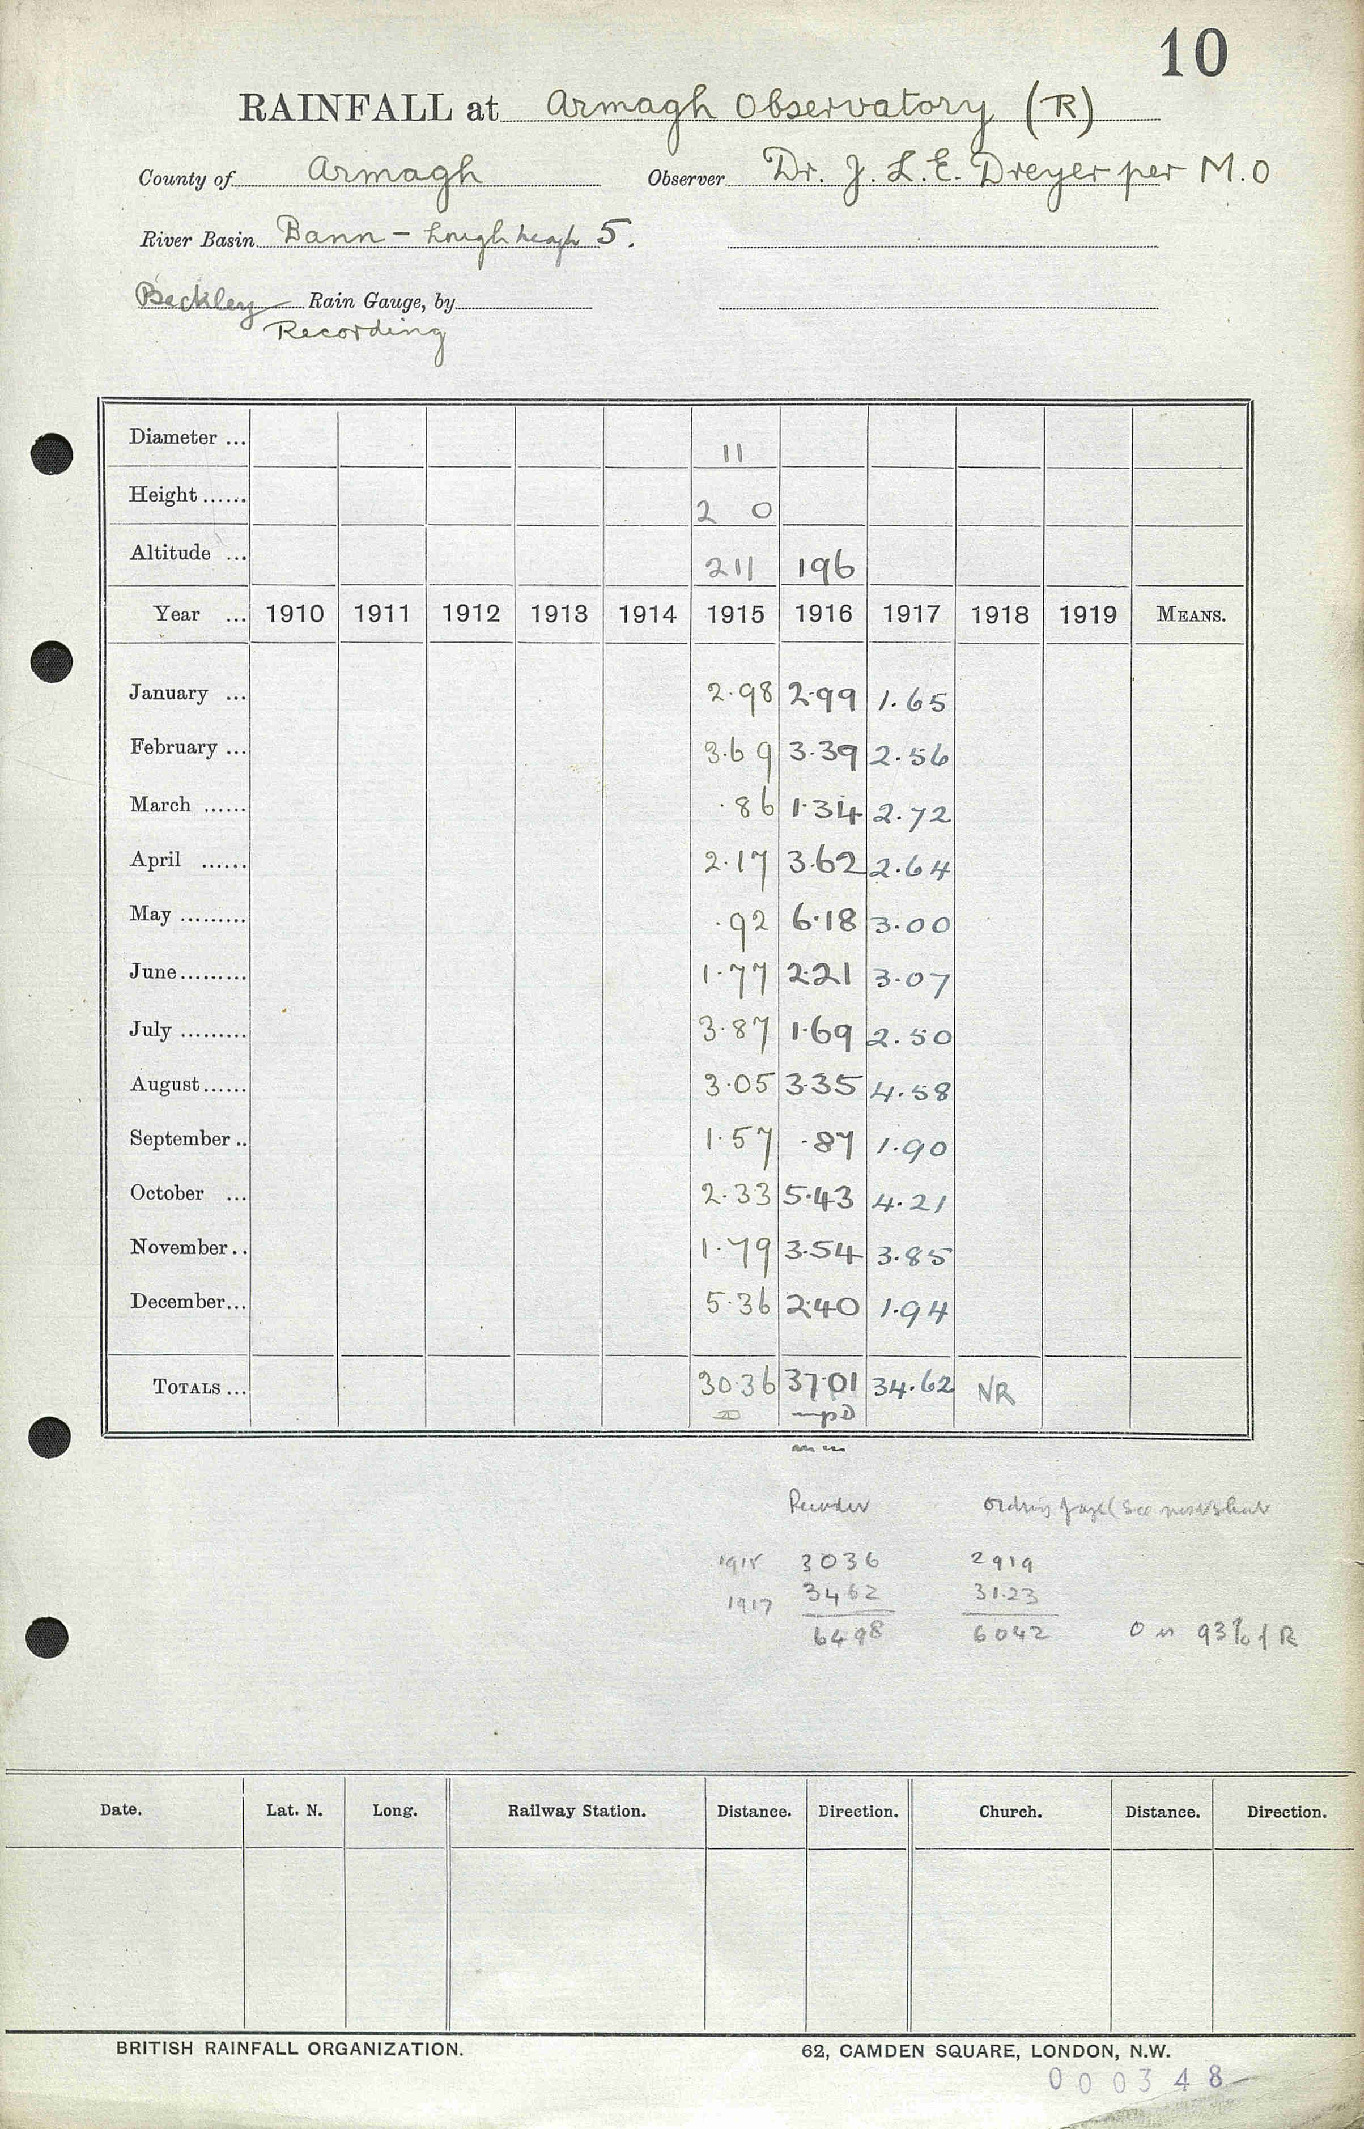 10
RAINFALL at Armagh Observatory (R)
County of Armagh Observer Dr. J. L. E. Dreyer per M.O
River Basin Bann - Lough Neagh 5.
Beckley Rain Gauge, by
Recording
Diameter ... 11
Height ...... 2 0
Altitude ... 211 196
Year ... 1910 1911 1912 1913 1914 1915 1916 1917 1918 1919 MEANS.
January ... 2.98 2.99 1.65
February ... 3.69 3.39 2.56
March ...... .86 1.34 2.72
April ...... 2.17 3.62 2.64
May ......... .92 6.18 3.00
June ......... 1.77 2.21 3.07
July ......... 3.87 1.69 2.50
August ...... 3.05 3.35 4.58
September .. 1.57 .87 1.90
October ... 2.33 5.43 4.21
November .. 1.79 3.54 3.85
December ... 5.36 2.40 1.94
TOTALS ... 30.36 37.01 34.62 NR
Recorder (See next sheet
1915 3036 2919
1917 3462 31.23
6498 6042 O = 93% of R
Date. Lat. N. Long. Railway Station. Distance. Direction. Church. Distance. Direction.
BRITISH RAINFALL ORGANIZATION. 62, CAMDEN SQUARE, LONDON, N.W.
000348